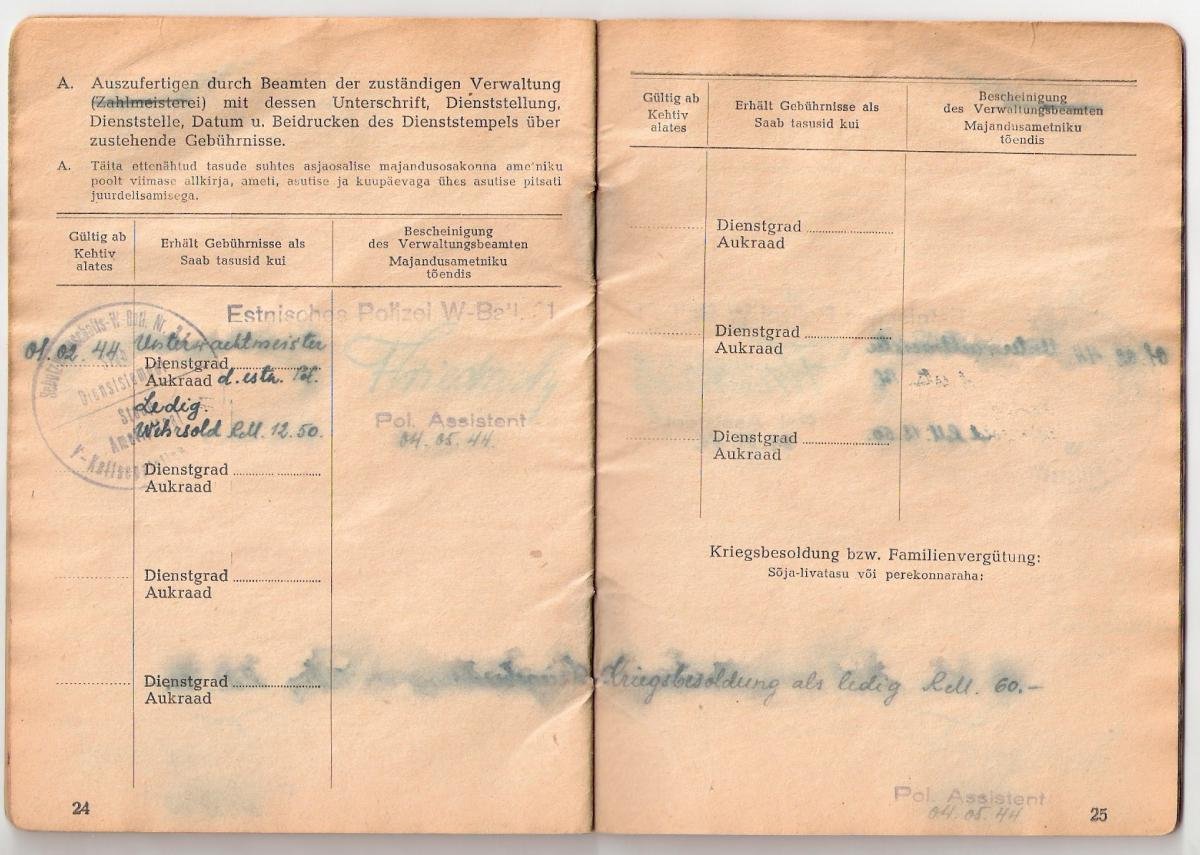 A. Auszufertigen durch Beamten der zuständigen Verwaltung
(Zahlmeisterei) mit dessen Unterschrift, Dienststellung,
Dienststelle, Datum u. Beidrucken des Dienststempels über
zustehende Gebührnisse.
A. Täita ettenähtud tasude suhtes asjaosalise majandusosakonna ame'niku
poolt viimase allkirja, ameti, asutise ja kuupäevaga ühes asutise pitsati
juurdelisamisega.
Gültig ab
Kehtiv
alates
Erhält Gebührnisse als
Saab tasusid kui
Bescheinigung
des Verwaltungsbeamten
Majandusametniku
tõendis
Estnisches Polizei W-Batl.
01.02.44. Unterwachtmeister
Dienstgrad
Aukraad d. estn. Pol.
Ledig.
Wehrsold RM. 12.50.
Dienststempel
Pol. Assistent
04.05.44.
Dienstgrad
Aukraad
Dienstgrad
Aukraad
Dienstgrad
Aukraad
24
Gültig ab
Kehtiv
alates
Erhält Gebührnisse als
Saab tasusid kui
Bescheinigung
des Verwaltungsbeamten
Majandusametniku
tõendis
Dienstgrad
Aukraad
Dienstgrad
Aukraad
Dienstgrad
Aukraad
Kriegsbesoldung bzw. Familienvergütung:
Sõja-livatasu või perekonnaraha:
Kriegsbesoldung als ledig RM. 60.—
Pol. Assistent
04.05.44
25